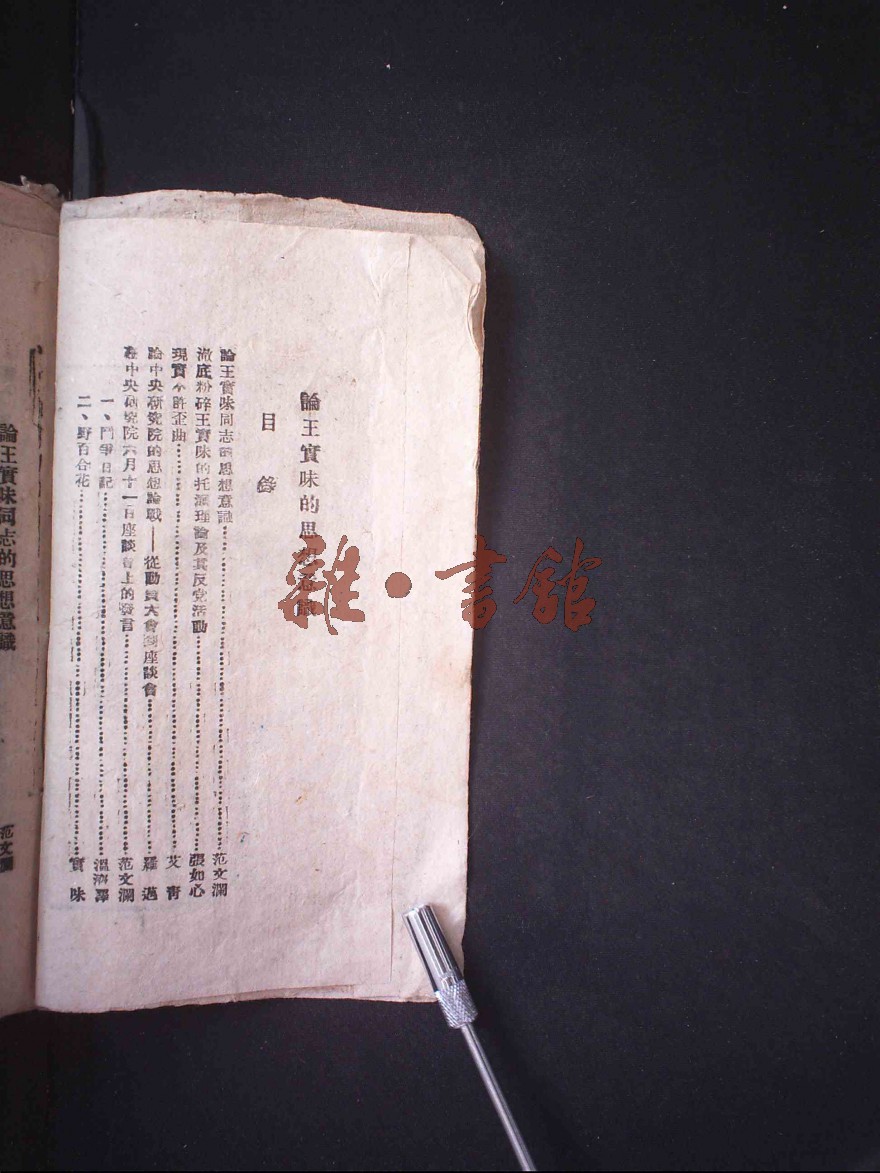 論王實味的思想意識
目錄
論王實味同志的思想意識……范文瀾
澈底粉碎王實味的托派理論及其反党活動……張如心
現實不許歪曲……艾青
論中央研究院的思想論戰——從動員大會到座談會……羅邁
在中央研究院六月十一日座談會上的發言……范文瀾
一、鬥爭日記……溫濟澤
二、野百合花……實味
論王實味同志的思想意識
范文瀾
雜·書館